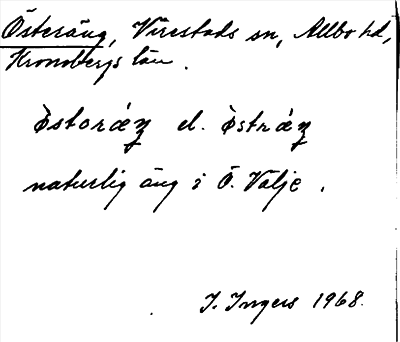 Österäng, Virestads sn, Allbo hd,
Kronobergs län.
naturlig äng i Ö. Välje.
I. Ingers 1968.